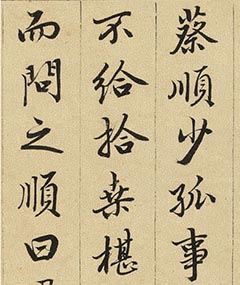 蔡順少孤事
不給拾桑椹
而問之順曰